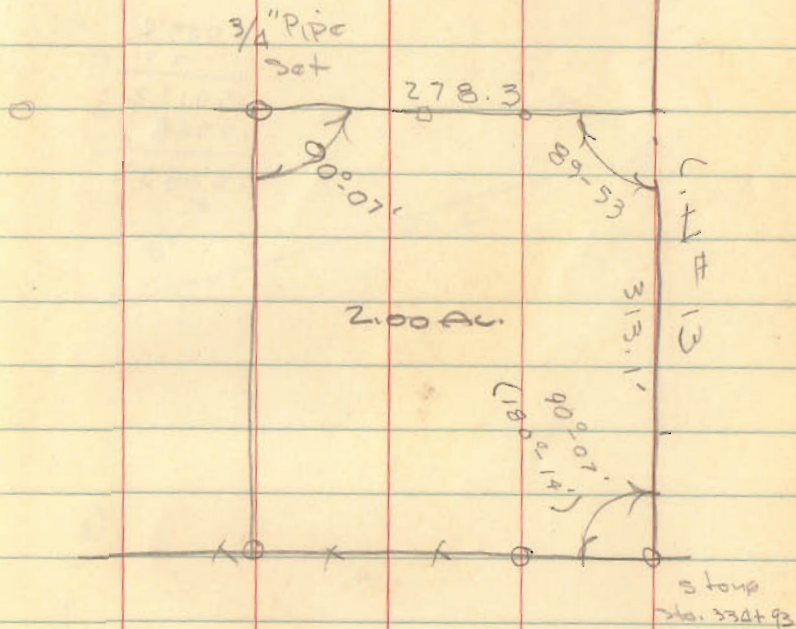 3/4" Pipe
Set
278.3
90°-07'
89-53
2.00 Ac.
313.1'
90°-07'
(180°-14')
stone
Sta. 334+93